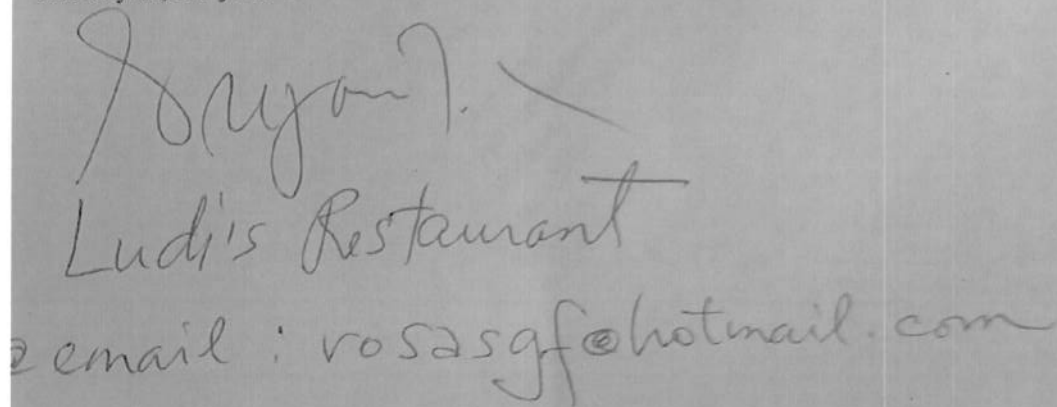 Ludi's Restaurant
email : rosasgf@hotmail.com